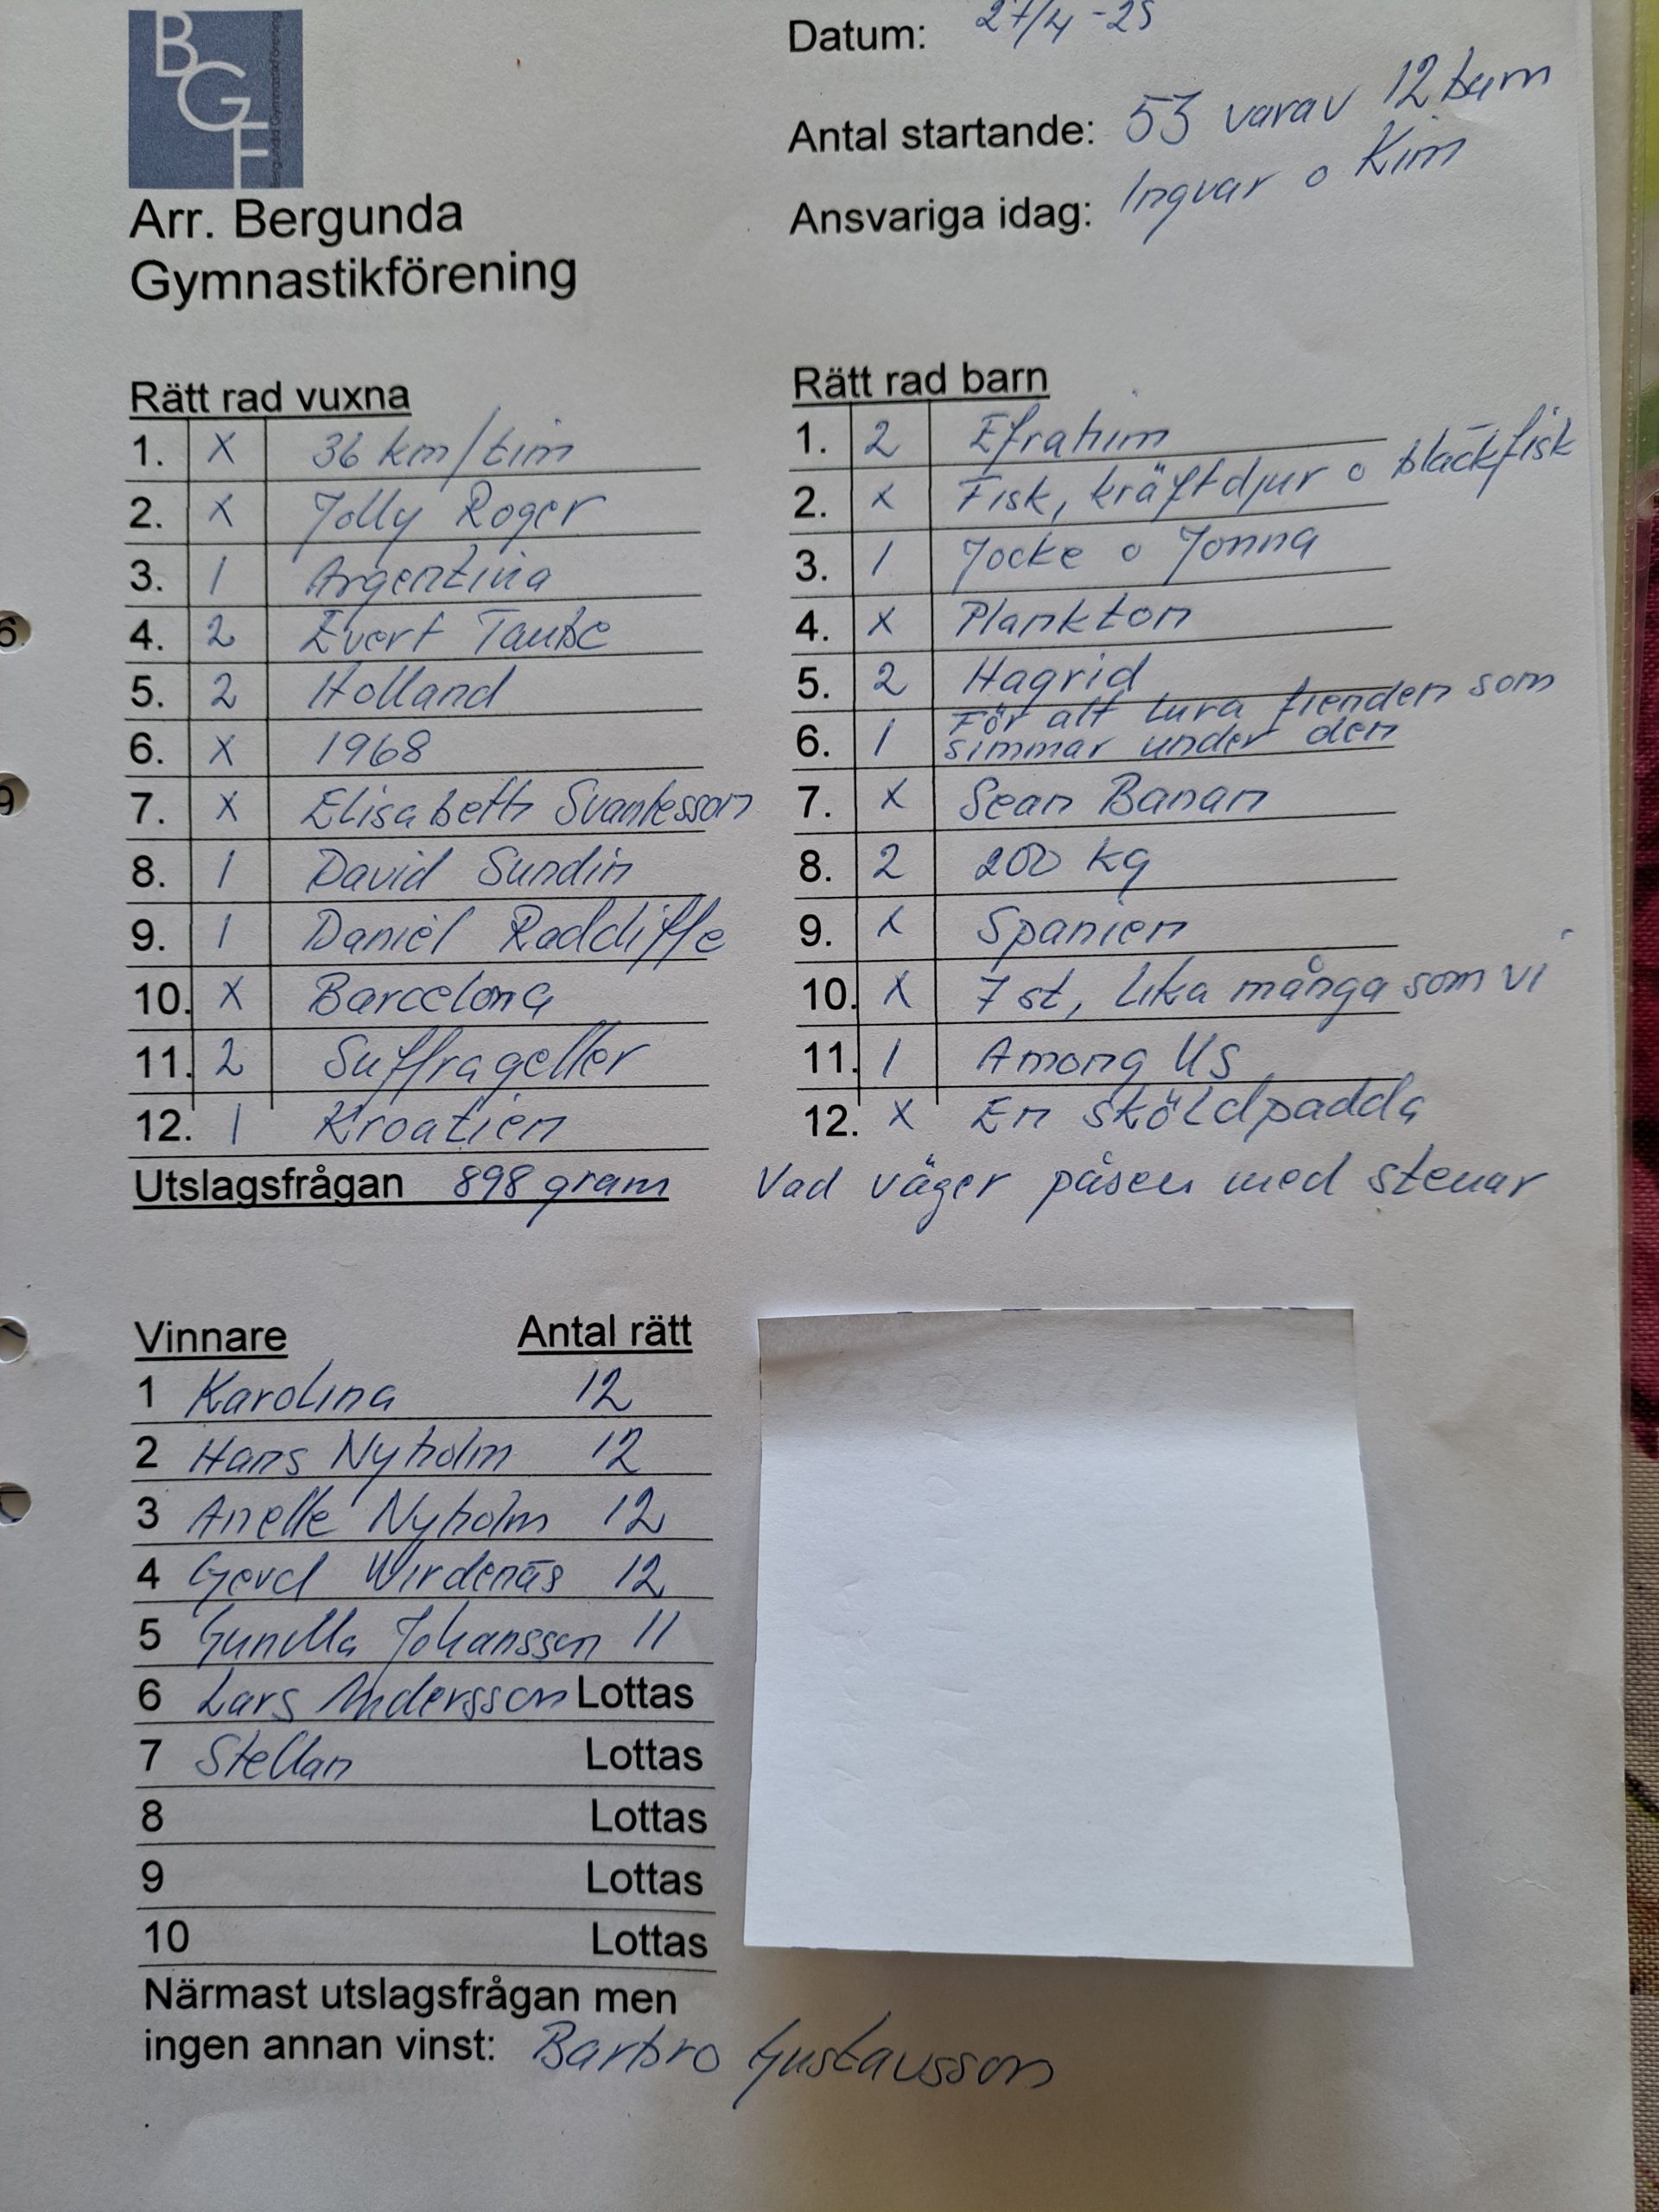 BGF
Bergunda Gymnastikförening
Arr. Bergunda
Gymnastikförening
Datum: 27/4 -25
Antal startande: 53 varav 12 barn
Ansvariga idag: Ingvar o Kim
Rätt rad vuxna
1. X 36 km/tim
2. X Jolly Roger
3. 1 Argentina
4. 2 Evert Taube
5. 2 Holland
6. X 1968
7. X Elisabeth Svantesson
8. 1 David Sundin
9. 1 Daniel Radcliffe
10. X Barcelona
11. 2 Suffragetter
12. 1 Kroatien
Utslagsfrågan 898 gram Vad väger påsen med stenar
Rätt rad barn
1. 2 Efrahim
2. X Fisk, kräftdjur o bläckfisk
3. 1 Jocke o Jonna
4. X Plankton
5. 2 Hagrid
6. 1 För att lura fienden som
simmar under den
7. X Sean Banan
8. 2 200 kg
9. X Spanien
10. X 7 st, lika många som vi
11. 1 Among Us
12. X En sköldpadda
Vinnare Antal rätt
1 Karolina 12
2 Hans Nyholm 12
3 Anette Nyholm 12
4 Gerd Wirdenäs 12
5 Gunilla Johansson 11
6 Lars Andersson Lottas
7 Stellan Lottas
8 Lottas
9 Lottas
10 Lottas
Närmast utslagsfrågan men
ingen annan vinst: Barbro Gustavsson
6
9